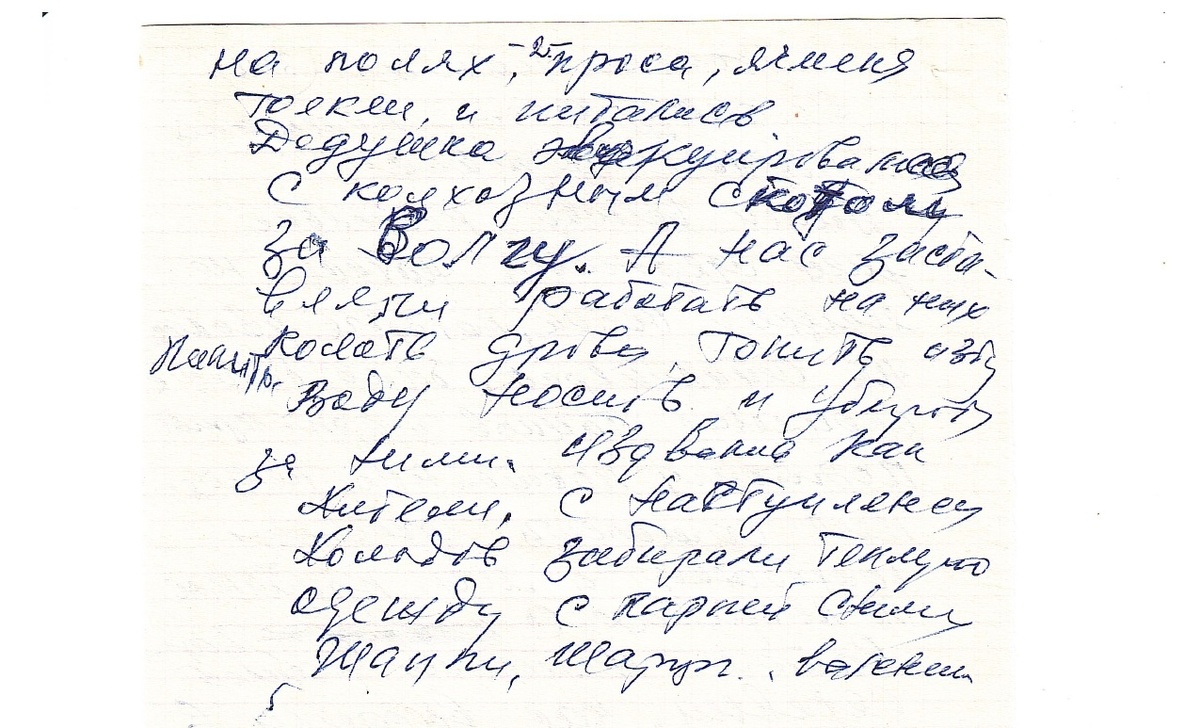 -2-
на полях, проса, ячменя
толкли, и питались
Дедушка эвакуировался
с колхозным скотом
за Волгу. А нас заста-
вляли работать на них
колоть дрова, топить избу
воду носить и убирать
за ними.
хотели, с наступлением
холодов забирали теплую
одежду с парней сними
Шапки, шарф. валенки